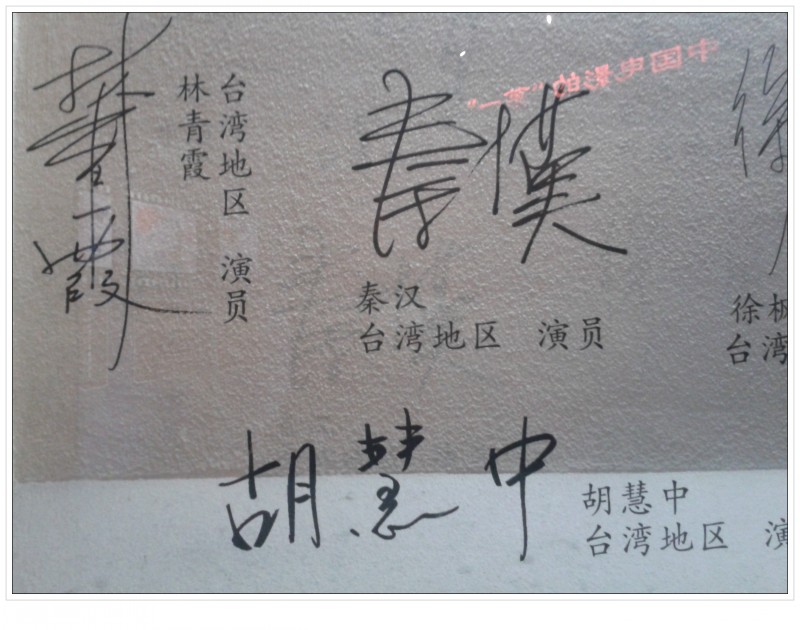 林青霞
台湾地区 演员
林青霞
秦漢
秦汉
台湾地区 演员
徐
徐枫
台湾
胡慧中
胡慧中
台湾地区 演